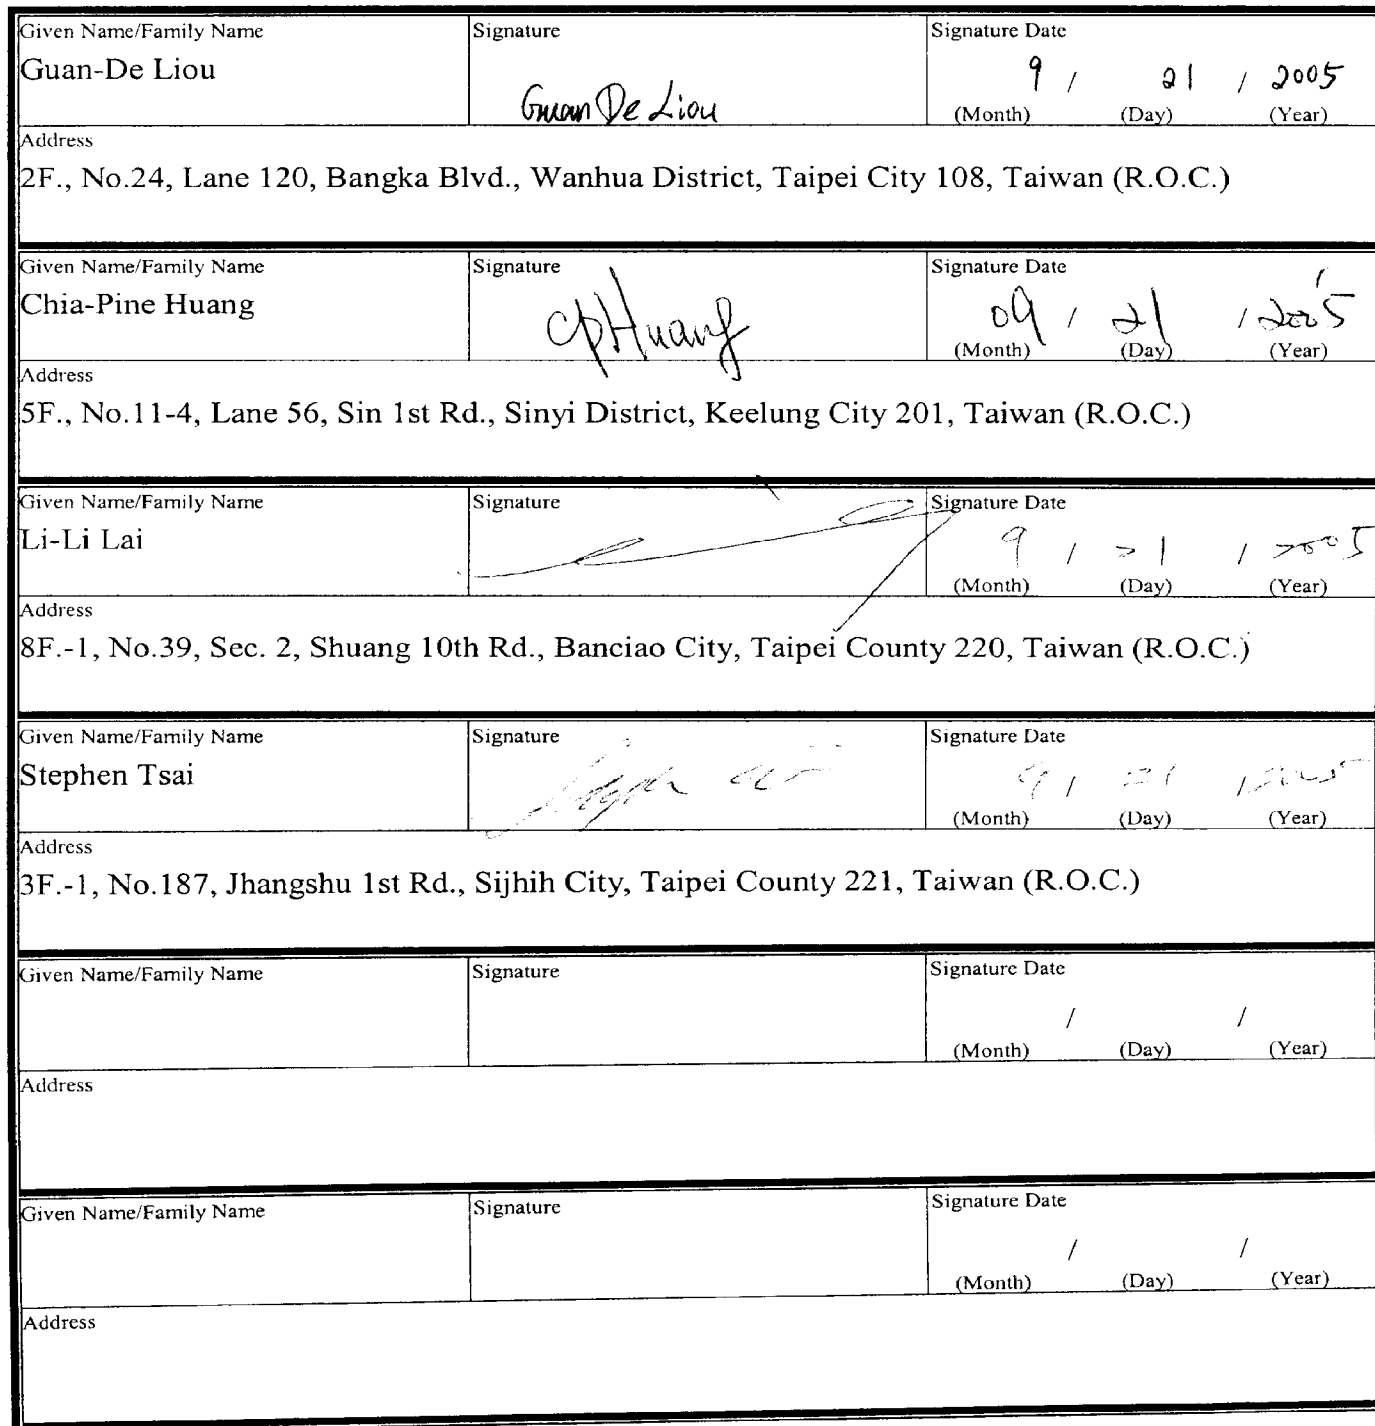 Given Name/Family Name Signature Signature Date
Guan-De Liou Guan De Liou 9 / 21 / 2005
(Month) (Day) (Year)
Address
2F., No.24, Lane 120, Bangka Blvd., Wanhua District, Taipei City 108, Taiwan (R.O.C.)
Given Name/Family Name Signature Signature Date
Chia-Pine Huang CPHuang 09 / 21 / 2005
(Month) (Day) (Year)
Address
5F., No.11-4, Lane 56, Sin 1st Rd., Sinyi District, Keelung City 201, Taiwan (R.O.C.)
Given Name/Family Name Signature Signature Date
Li-Li Lai 9 / 21 / 2005
(Month) (Day) (Year)
Address
8F.-1, No.39, Sec. 2, Shuang 10th Rd., Banciao City, Taipei County 220, Taiwan (R.O.C.)
Given Name/Family Name Signature Signature Date
Stephen Tsai 9 / 21 / 2005
(Month) (Day) (Year)
Address
3F.-1, No.187, Jhangshu 1st Rd., Sijhih City, Taipei County 221, Taiwan (R.O.C.)
Given Name/Family Name Signature Signature Date
/ /
(Month) (Day) (Year)
Address
Given Name/Family Name Signature Signature Date
/ /
(Month) (Day) (Year)
Address